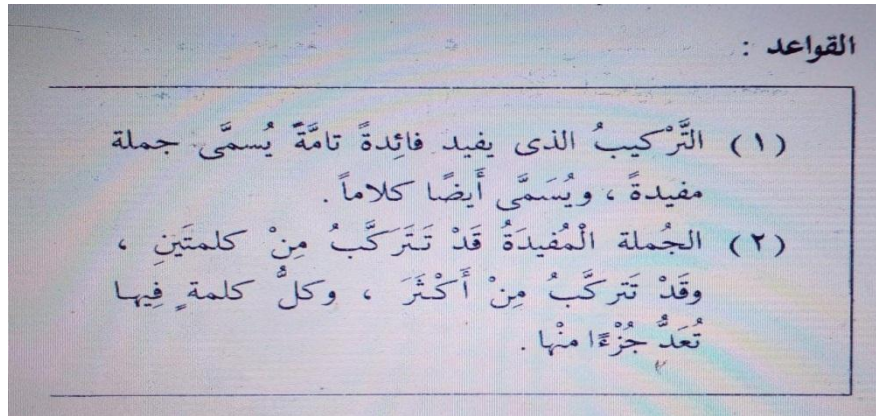 القواعد :
(١) التَّرْكيبُ الذى يفيد فائِدةً تامَّةً يُسمَّى جملة
مفيدةً ، ويُسَمَّى أَيضًا كلاماً .
(٢) الجُملة الْمُفيدَةُ قَدْ تَتَرَكَّبُ مِنْ كلمتَينِ ،
وقَدْ تَتركَّبُ مِنْ أَكْثَرَ ، وكلُّ كلمةٍ فِيها
تُعَدُّ جُزْءًا منْها .